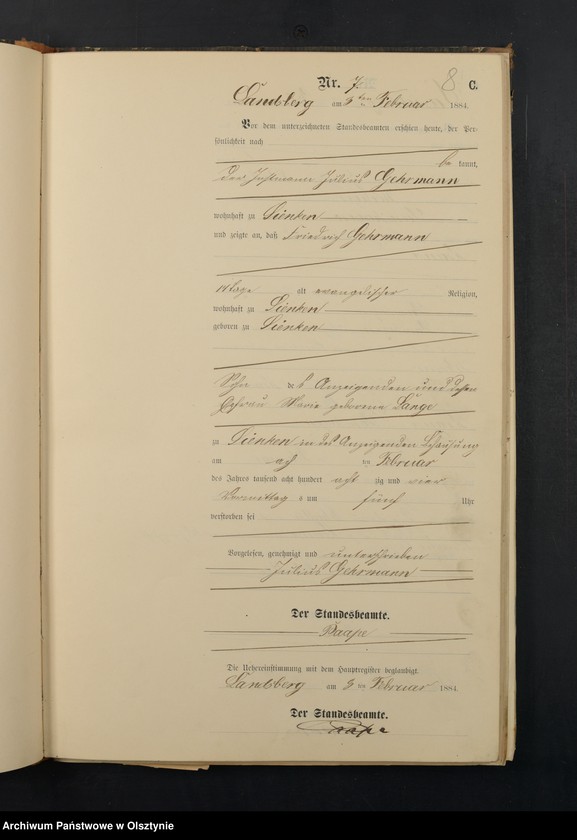 Nr. 7. 8 C.
Landsberg am 9ten Februar 1884.
Vor dem unterzeichneten Standesbeamten erschien heute, der Per=
sönlichkeit nach
be kannt,
der Instmann Julius Gehrmann
wohnhaft zu Sienken
und zeigte an, daß Friedrich Gehrmann
alt evangelischer Religion,
wohnhaft zu Sienken
geboren zu Sienken
Sohn des Anzeigenden und dessen
Ehefrau Marie geborene Lange
zu Sienken in des Anzeigenden Behausung
am ten Februar
des Jahres tausend acht hundert acht zig und vier
Vormittag s um fünf Uhr
verstorben sei
Vorgelesen, genehmigt und unterschrieben
Julius Gehrmann
Der Standesbeamte.
Paape
Die Uebereinstimmung mit dem Hauptregister beglaubigt.
Landsberg am 9 ten Februar 1884.
Der Standesbeamte.
Paape
Archiwum Państwowe w Olsztynie